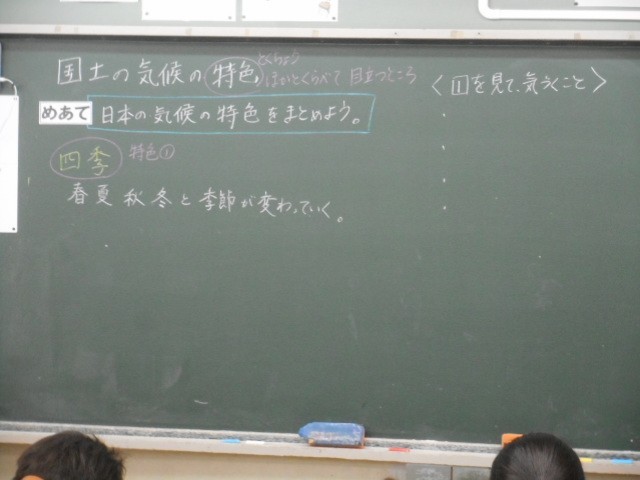 国土の気候の特色
とくちょう
ほかとくらべて目立つところ
めあて 日本の気候の特色をまとめよう。
四季 特色①
春夏秋冬と季節が変わっていく。
〈1を見て、気づくこと〉
・
・
・
・